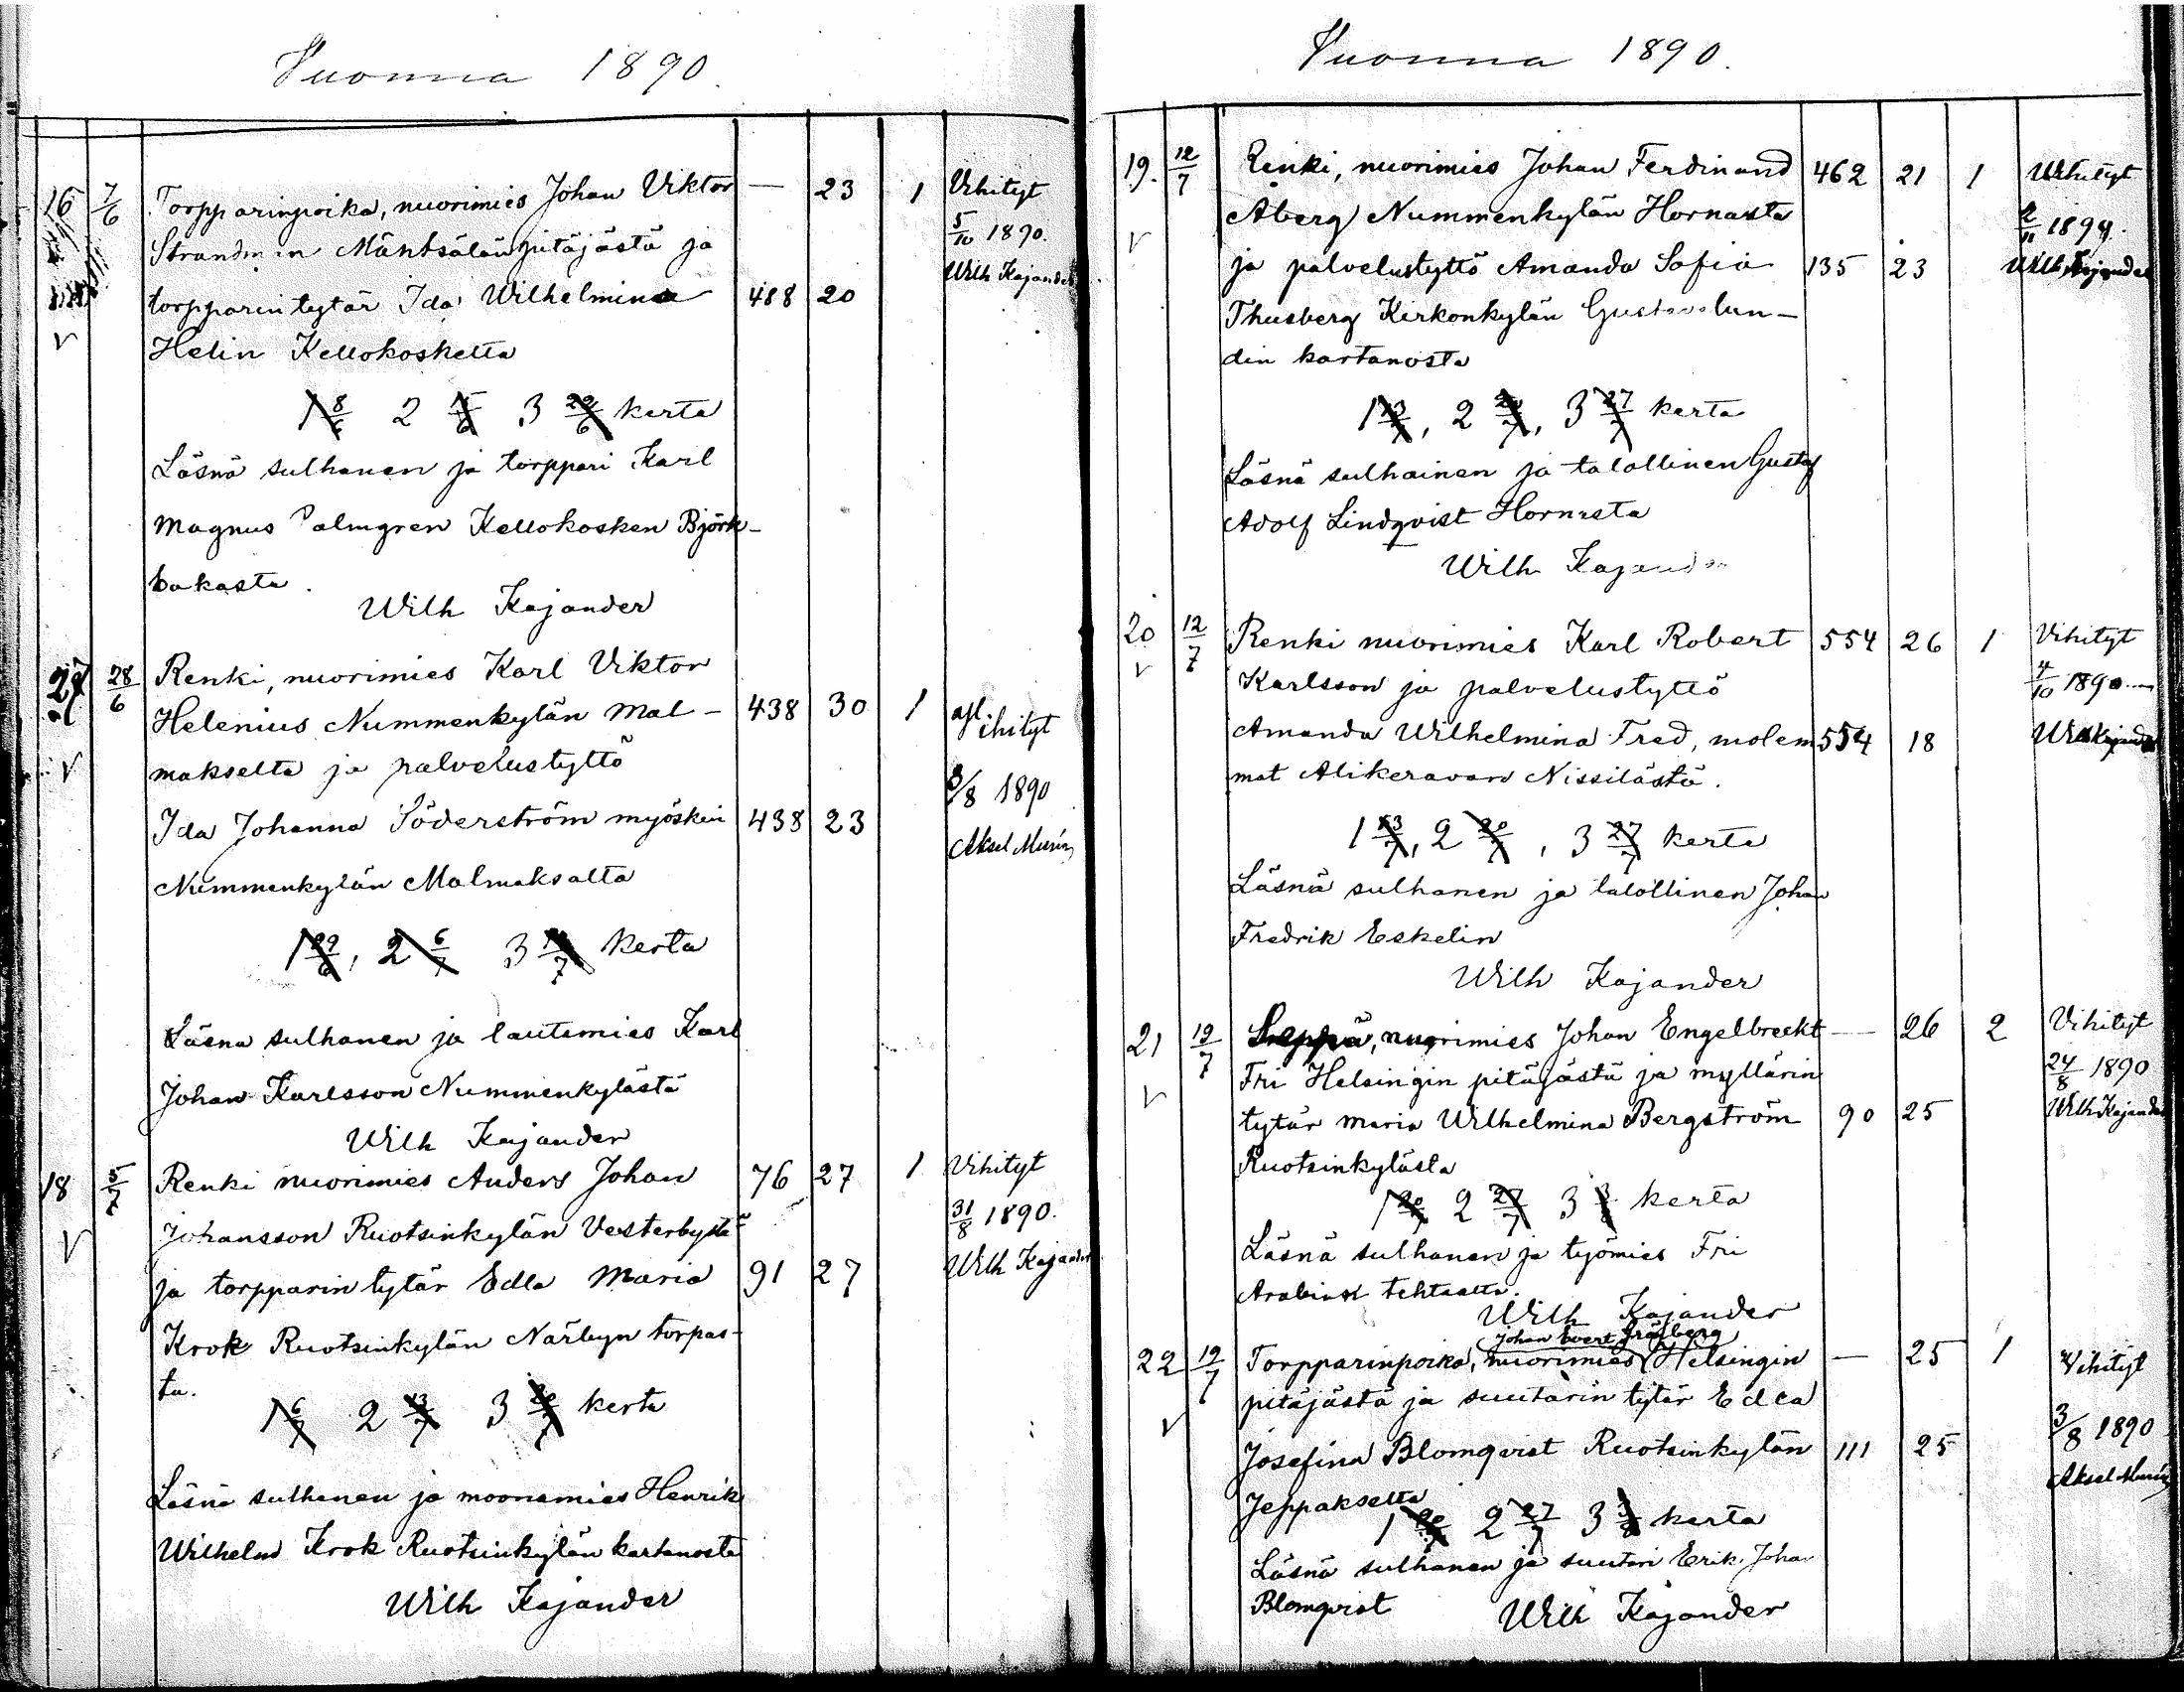 Vuonna 1890.
16 7/6 Torpparinpoika, nuorimies Johan Viktor — 23 1 Vihityt
Strandman Mäntsälän pitäjästä ja 5/10 1890.
torpparin tytär Ida Wilhelmina 488 20 Wilh Kajander
Helin Kellokoskelta
1 8/6 2 15/6 3 22/6 kerta
Läsnä sulhanen ja torppari Karl
Magnus Palmgren Kellokosken Björk-
bakasta.
Wilh Kajander
28/6 Renki, nuorimies Karl Viktor
Helenius Nummenkylän Mal- 438 30 1 Vihityt
makselta ja palvelustyttö 3/8 1890
Ida Johanna Söderström myöskin 438 23 Aksel Murén
Nummenkylän Malmaksalta
1 29/6, 2 6/7 3 kerta
Läsna sulhanen ja lautamies Karl
Johan Karlsson Nummenkylästä
Wilh Kajander
18 5/7 Renki nuorimies Anders Johan 76 27 1 Vihityt
Johansson Ruotsinkylän Vesterbystä 31/8 1890.
ja torpparin tytär Edla Maria 91 27 Wilh Kajander
Krok Ruotsinkylän Närbyn torpas-
ta.
1 6/7 2 13/7 3 20/7 kerta
Läsnä sulhanen ja moonamies Henrik
Wilhelm Krok Ruotsinkylän kartanosta
Wilh Kajander
Vuonna 1890.
19. 12/7 Renki, nuorimies Johan Ferdinand 462 21 1 Vihityt
Åberg Nummenkylän Hornasta 2/11 1890.
ja palvelustyttö Amanda Sofia 135 23 Wilh Kajander
Thusberg Kirkonkylän Gustavelun-
din kartanosta
1 13/7, 2 20/7, 3 27/7 kerta
Läsnä sulhainen ja talollinen Gustaf
Adolf Lindqvist Hornasta
Wilh Kajander
20 12/7 Renki nuorimies Karl Robert 554 26 1 Vihityt
Karlsson ja palvelustyttö 4/10 1890
Amanda Wilhelmina Fred, molem 554 18 Wilh Kajander
mat Alikeravan Nissilästä.
1 13/7, 2 20/7, 3 27/7 kerta
Läsnä sulhanen ja talollinen Johan
Fredrik Eskelin
Wilh Kajander
21 19/7 Seppä, nuorimies Johan Engelbreckt — 26 2 Vihityt
Fri Helsingin pitäjästä ja myllärin 24/8 1890
tytär Maria Wilhelmina Bergström 90 25 Wilh Kajander
Ruotsinkylästä
1 20/7 2 27/7 3 3/8 kerta
Läsnä sulhanen ja työmies Fri
Arabian tehtaalta.
Wilh Kajander
Johan Evert Gråsberg
22 19/7 Torpparinpoika, nuorimies Helsingin — 25 1 Vihityt
pitäjästä ja suutarin tytär Edla 3/8 1890
Josefina Blomqvist Ruotsinkylän 111 25 Aksel Murén
Jeppakselta
1 20/7 2 27/7 3 3/8 kerta
Läsnä sulhanen ja suutari Erik Johan
Blomqvist Wilh Kajander